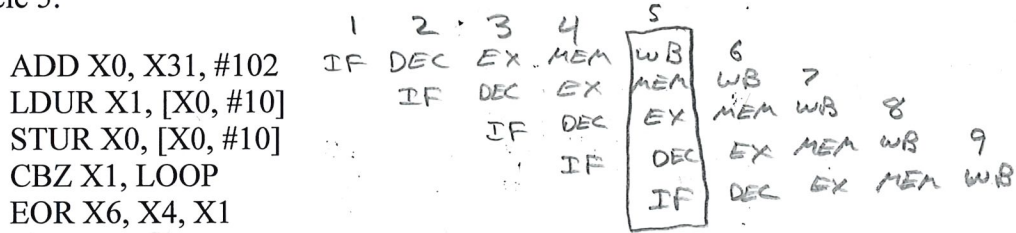 1 2 3 4 5
ADD X0, X31, #102 IF DEC EX MEM WB 6
LDUR X1, [X0, #10] IF DEC EX MEM WB 7
STUR X0, [X0, #10] IF DEC EX MEM WB 8
CBZ X1, LOOP IF DEC EX MEM WB 9
EOR X6, X4, X1 IF DEC EX MEM WB